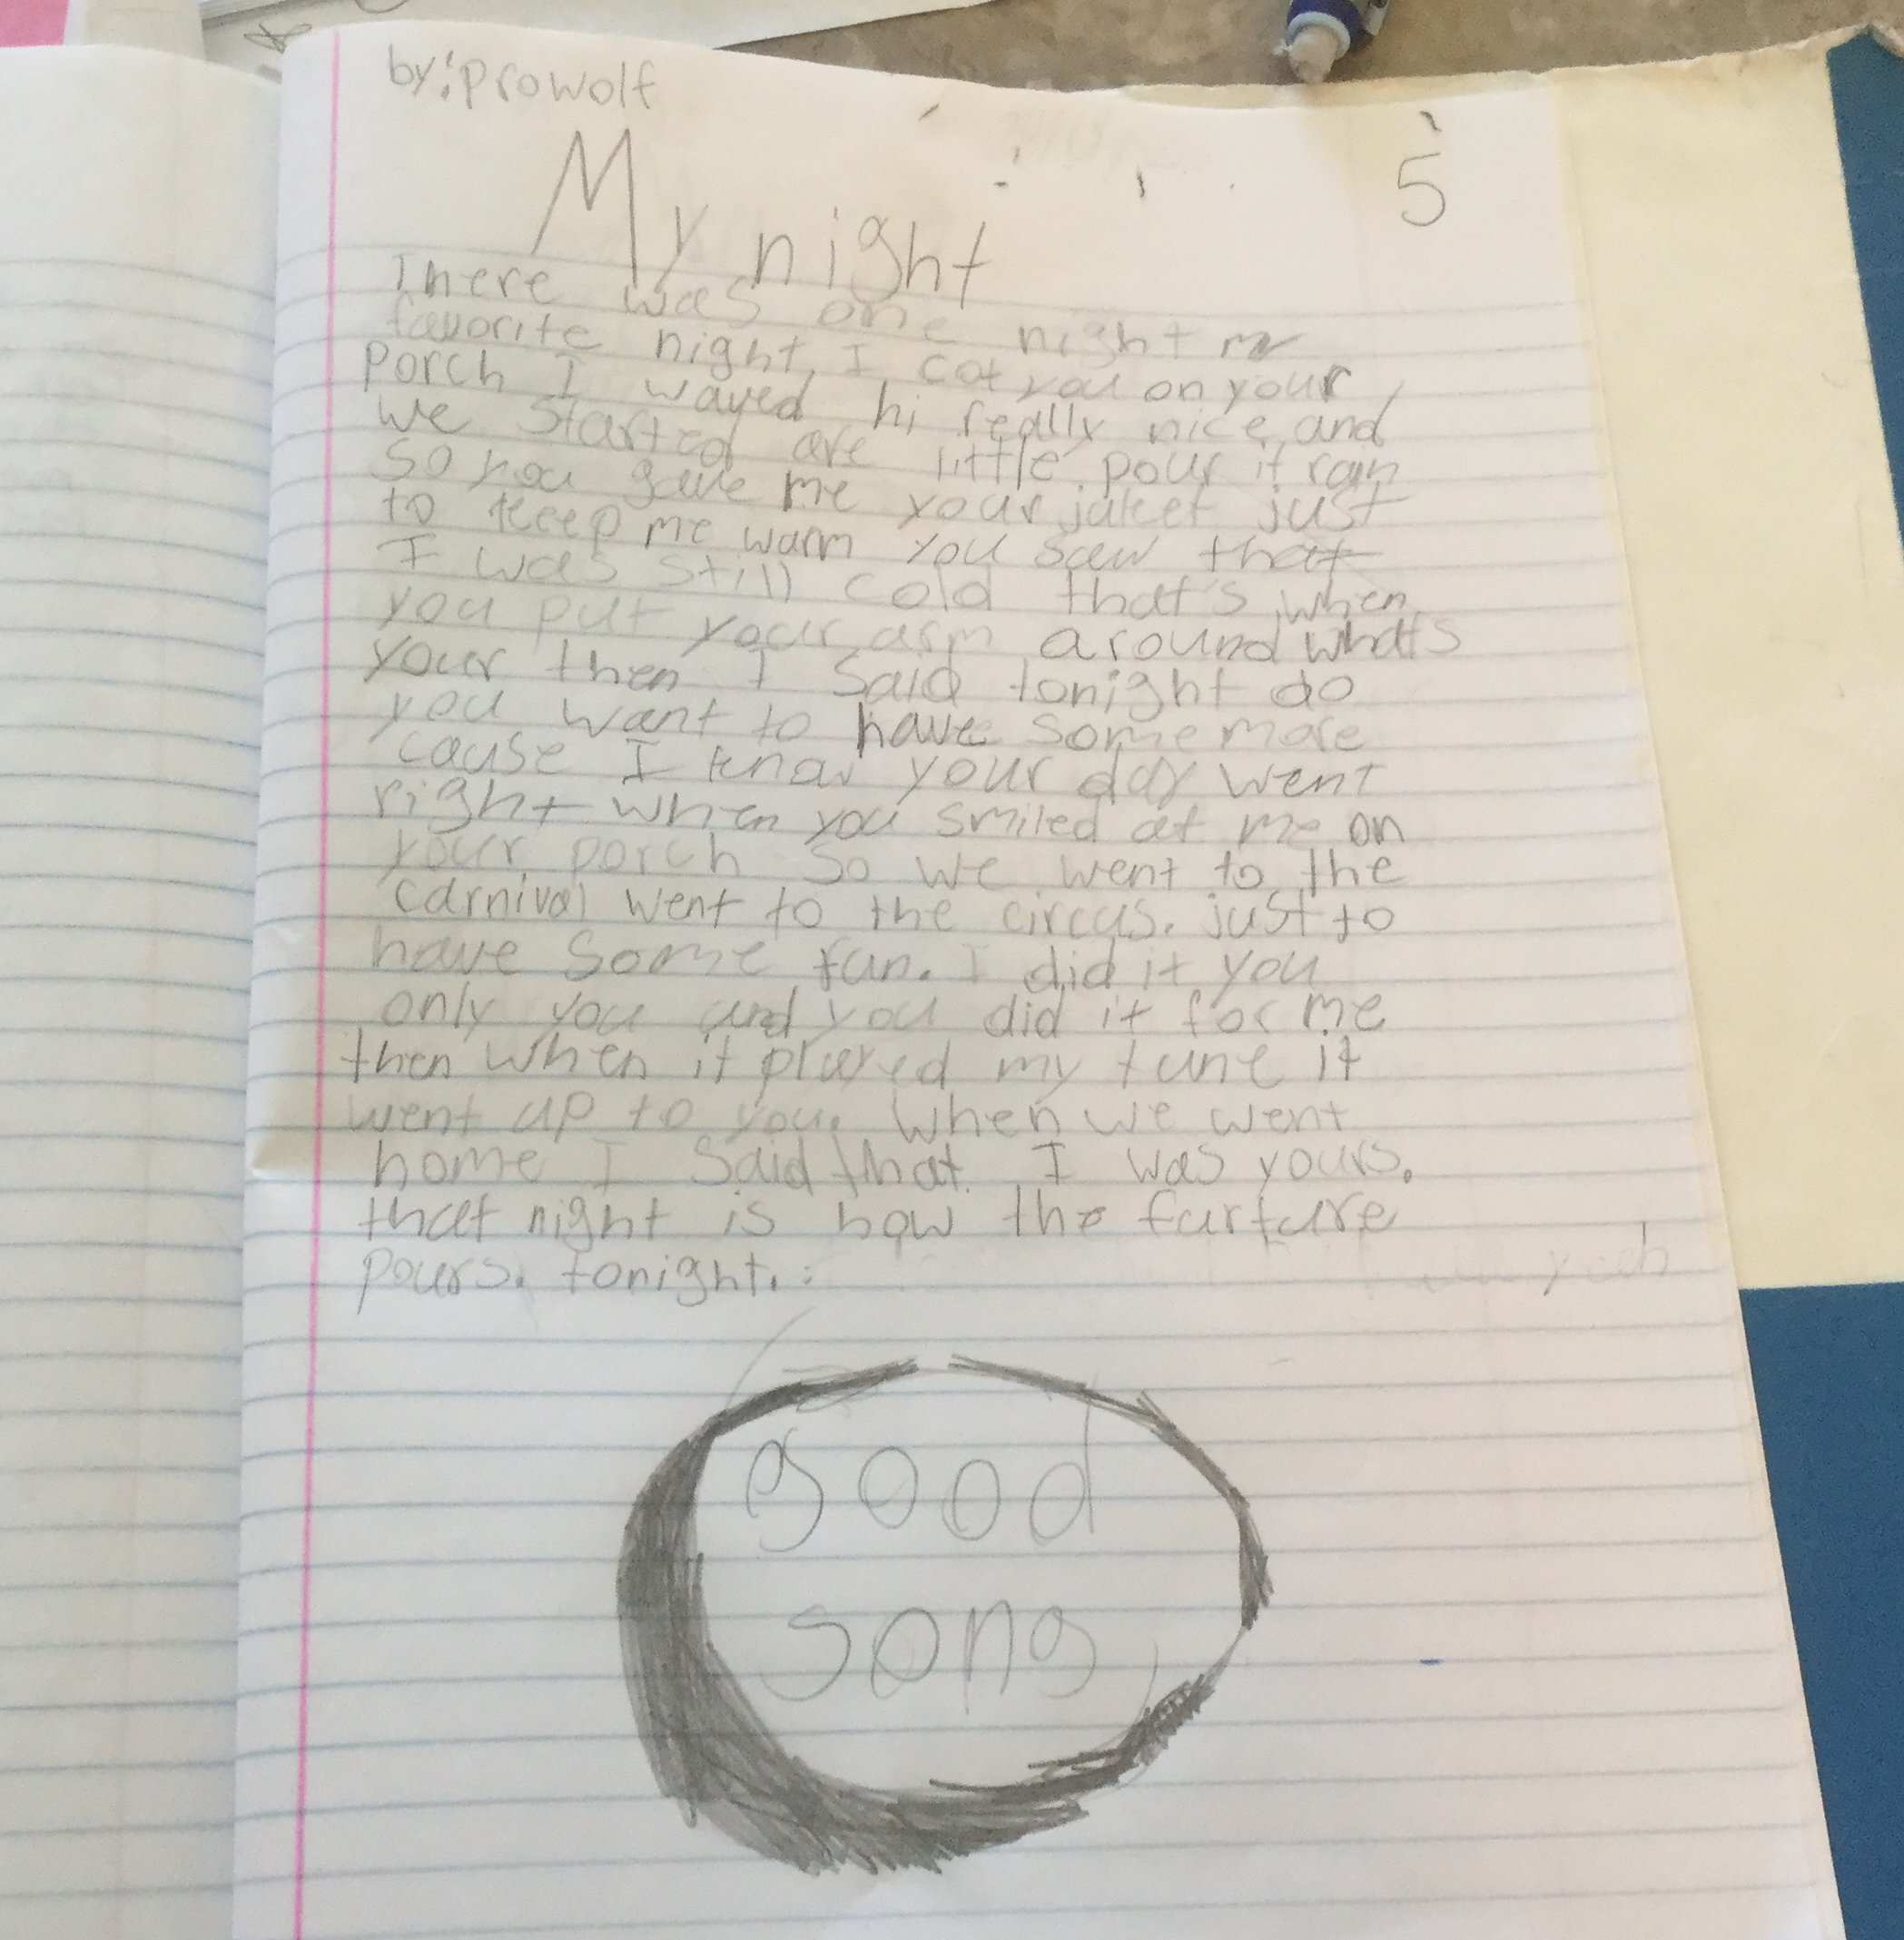 by: prowolf
5
My night
There was one night my
favorite night, I cot you on your
porch I waved hi really nice, and
we started are little pour it rain
so you gave me your jaket just
to keep me warm you saw that
I was still cold that's when
you put your arm around whats
your then I said tonight do
you want to have some more
cause I know your day went
right when you smiled at me on
your porch so we went to the
carnival went to the circus. just to
have some fun. I did it you
only you and you did it for me
then when it played my tune it
went up to you. when we went
home I said that I was yours.
that night is how the furture
pours. tonight.
yeah
good
song